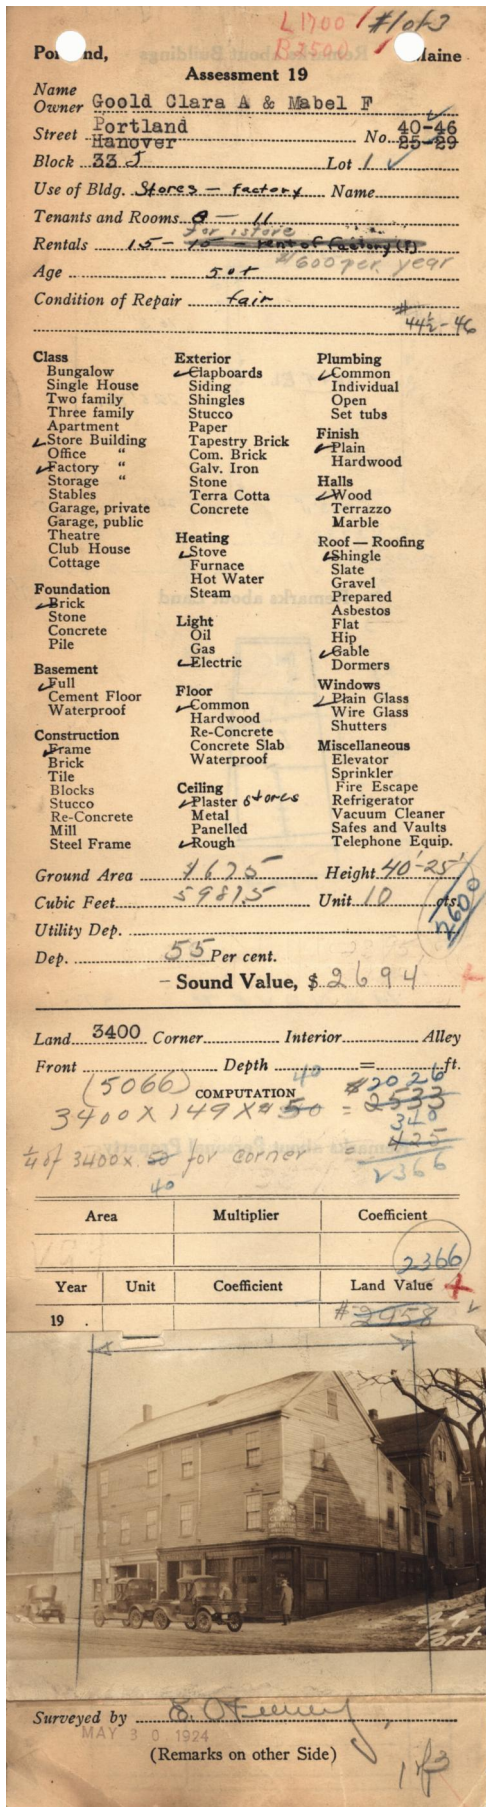 L 1700 #1 of 3
B 2500
Portland, Maine
Assessment 19
Name
Owner Goold Clara A & Mabel F
Street Portland No. 40-46
Hanover 25-29
Block 33 J Lot 1
Use of Bldg. Stores - factory Name
Tenants and Rooms 8 - 11
for 1 store
Rentals 15 - 10 - rent of factory (?)
$600 per year
Age 50+
Condition of Repair fair
# 44½-46
Class
Bungalow
Single House
Two family
Three family
Apartment
Store Building
Office "
Factory "
Storage "
Stables
Garage, private
Garage, public
Theatre
Club House
Cottage
Foundation
Brick
Stone
Concrete
Pile
Basement
Full
Cement Floor
Waterproof
Construction
Frame
Brick
Tile
Blocks
Stucco
Re-Concrete
Mill
Steel Frame
Exterior
Clapboards
Siding
Shingles
Stucco
Paper
Tapestry Brick
Com. Brick
Galv. Iron
Stone
Terra Cotta
Concrete
Heating
Stove
Furnace
Hot Water
Steam
Light
Oil
Gas
Electric
Floor
Common
Hardwood
Re-Concrete
Concrete Slab
Waterproof
Ceiling
Plaster stores
Metal
Panelled
Rough
Plumbing
Common
Individual
Open
Set tubs
Finish
Plain
Hardwood
Halls
Wood
Terrazzo
Marble
Roof — Roofing
Shingle
Slate
Gravel
Prepared
Asbestos
Flat
Hip
Gable
Dormers
Windows
Plain Glass
Wire Glass
Shutters
Miscellaneous
Elevator
Sprinkler
Fire Escape
Refrigerator
Vacuum Cleaner
Safes and Vaults
Telephone Equip.
Ground Area 1675 Height 40'-25'
Cubic Feet 59875 Unit 10 cts.
2600
Utility Dep.
Dep. 55 Per cent.
- Sound Value, $ 2694
Land 3400 Corner Interior Alley
Front Depth = ft.
(5066) COMPUTATION 40 $2026
3400 X 149 X $ 50 = 2533
340
¼ of 3400 x 50 for corner = 425
40 2366
Area Multiplier Coefficient
2366
Year Unit Coefficient Land Value
19 . # 2958
Port.
Surveyed by
MAY 30 1924
(Remarks on other Side)
1 of 3